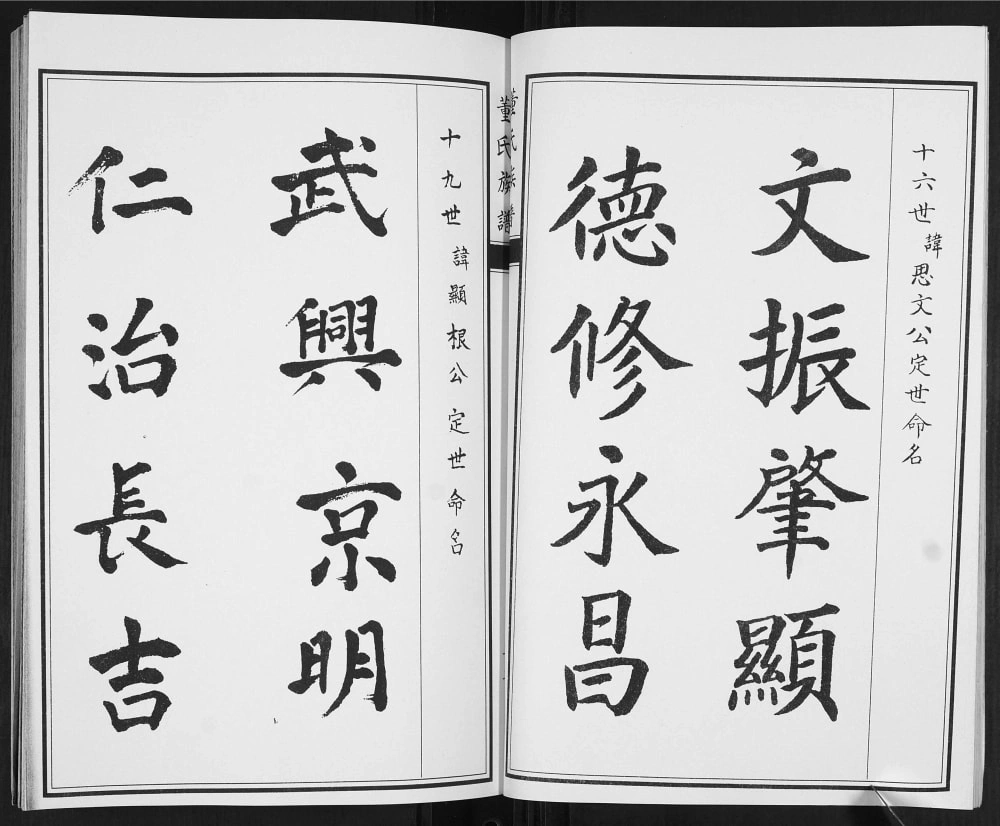 十六世諱思文公定世命名
文振肇顯
德修永昌
董氏族譜
十九世諱顯根公定世命名
武興京明
仁治長吉